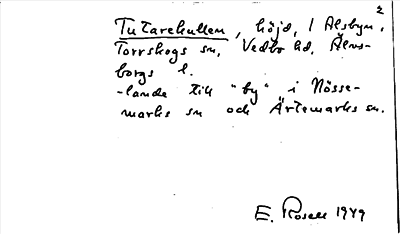 2
Tutarekullen, höjd, i Alsbyn,
Torrskogs sn, Vedbo hd, Älvs-
borgs l.
-lande till "by" i Nösse-
marks sn och Ärtemarks sn.
E. Rosell 1949